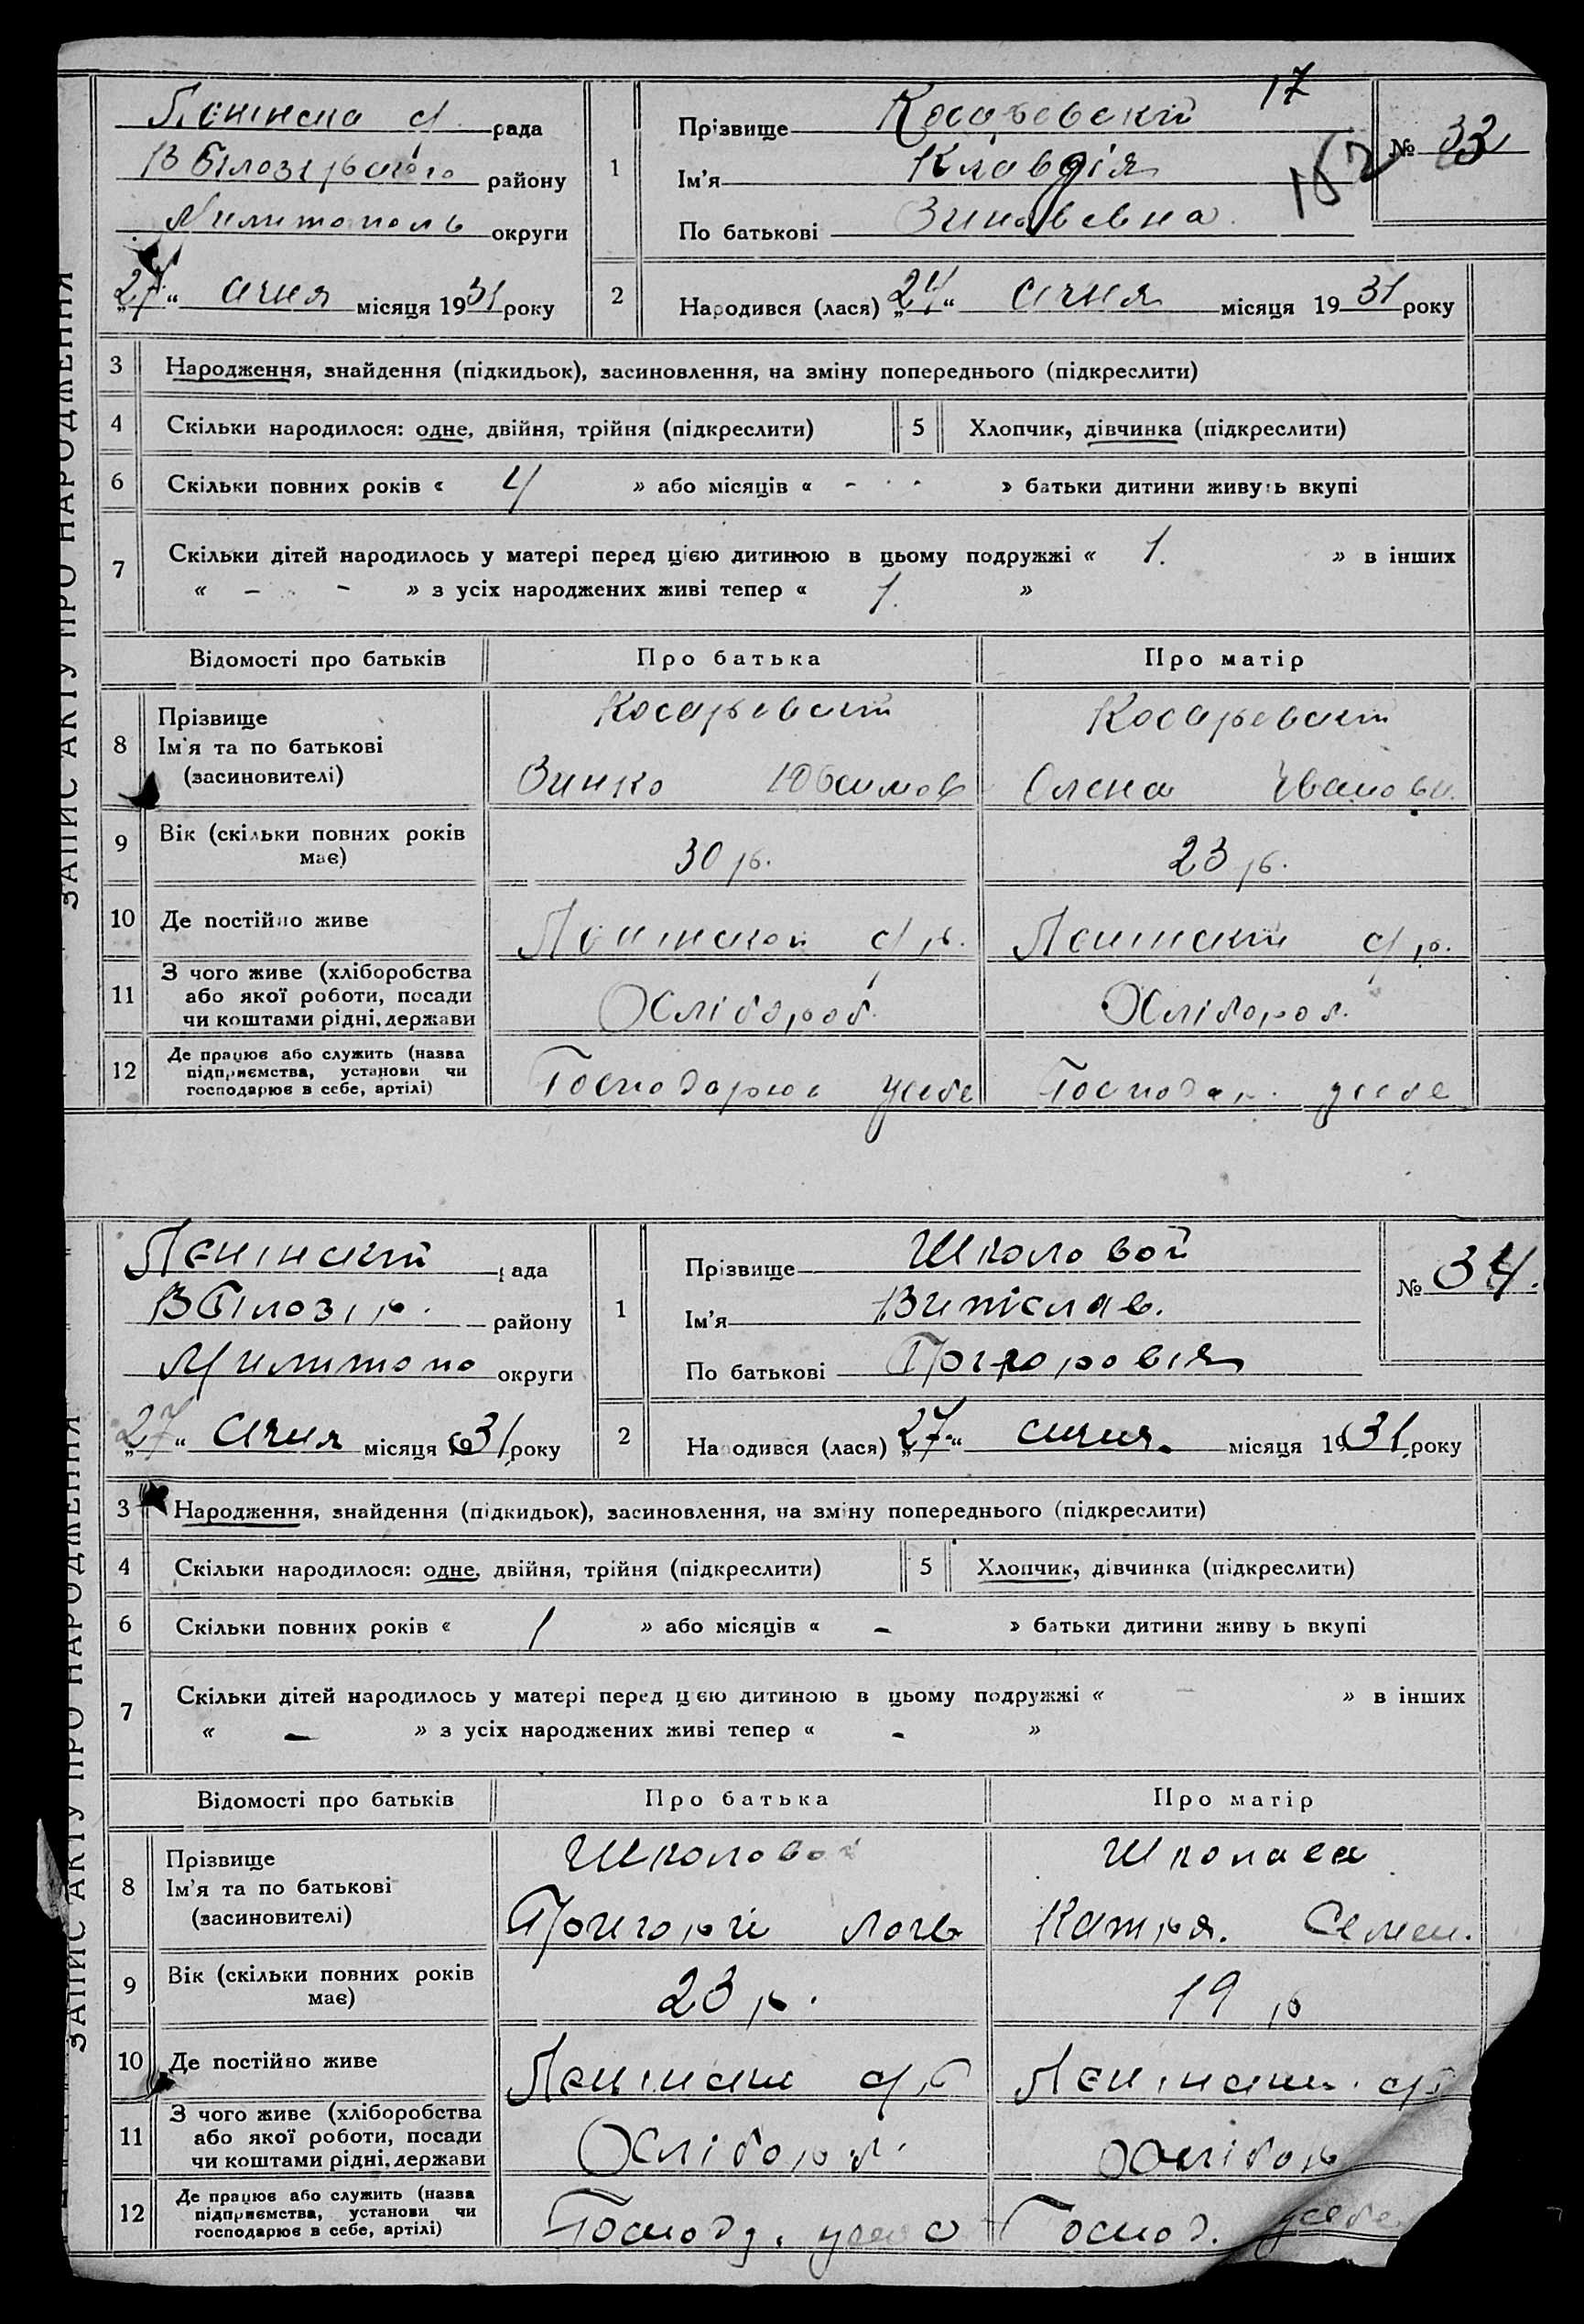 ЗАПИС АКТУ ПРО НАРОДЖЕННЯ
Ленінска с/ рада
В Білозірського району
Милитополь округи
„27“ січня місяця 1931 року
1
Прізвище Косаревский 17
Ім'я Клавдія
По батькові Зиновевна
№ 33
2 Народився (лася) „24“ січня місяця 1931 року
3 Народження, знайдення (підкидьок), засиновлення, на зміну попереднього (підкреслити)
4 Скільки народилося: одне, двійня, трійня (підкреслити) 5 Хлопчик, дівчинка (підкреслити)
6 Скільки повних років « 4 » або місяців « - » батьки дитини живуть вкупі
7 Скільки дітей народилось у матері перед цією дитиною в цьому подружжі « 1. » в інших
« - - » з усіх народжених живі тепер « 1. »
Відомості про батьків Про батька Про матір
8 Прізвище Косаревский Косаревский
Ім'я та по батькові
(засиновителі) Зинко Олена Івановн.
9 Вік (скільки повних років має) 30 р. 23 р.
10 Де постійно живе Ленінской с/р. Ленінский с/р.
11 З чого живе (хліборобства
або якої роботи, посади
чи коштами рідні, держави Хлібороб. Хлібороб.
12 Де працює або служить (назва
підприємства, установи чи
господарює в себе, артілі) Господарює усебе Господар. усебе
ЗАПИС АКТУ ПРО НАРОДЖЕННЯ
Ленінский рада
В Білозір. району
Милитопо округи
„27“ січня місяця 1931 року
1
Прізвище Школовой
Ім'я
По батькові Григоровія
№ 34.
2 Народився (лася) „27“ січня. місяця 1931 року
3 Народження, знайдення (підкидьок), засиновлення, на зміну попереднього (підкреслити)
4 Скільки народилося: одне, двійня, трійня (підкреслити) 5 Хлопчик, дівчинка (підкреслити)
6 Скільки повних років « 1 » або місяців « - » батьки дитини живуть вкупі
7 Скільки дітей народилось у матері перед цією дитиною в цьому подружжі « - » в інших
« - » з усіх народжених живі тепер « - »
Відомості про батьків Про батька Про матір
8 Прізвище Школовой
Ім'я та по батькові
(засиновителі) Григорій Катря. Семен.
9 Вік (скільки повних років має) 23 р. 19 р
10 Де постійно живе Ленінский с/р Ленінский с/р
11 З чого живе (хліборобства
або якої роботи, посади
чи коштами рідні, держави Хлібороб. Хлібор
12 Де працює або служить (назва
підприємства, установи чи
господарює в себе, артілі) Господ. Господ. усебе